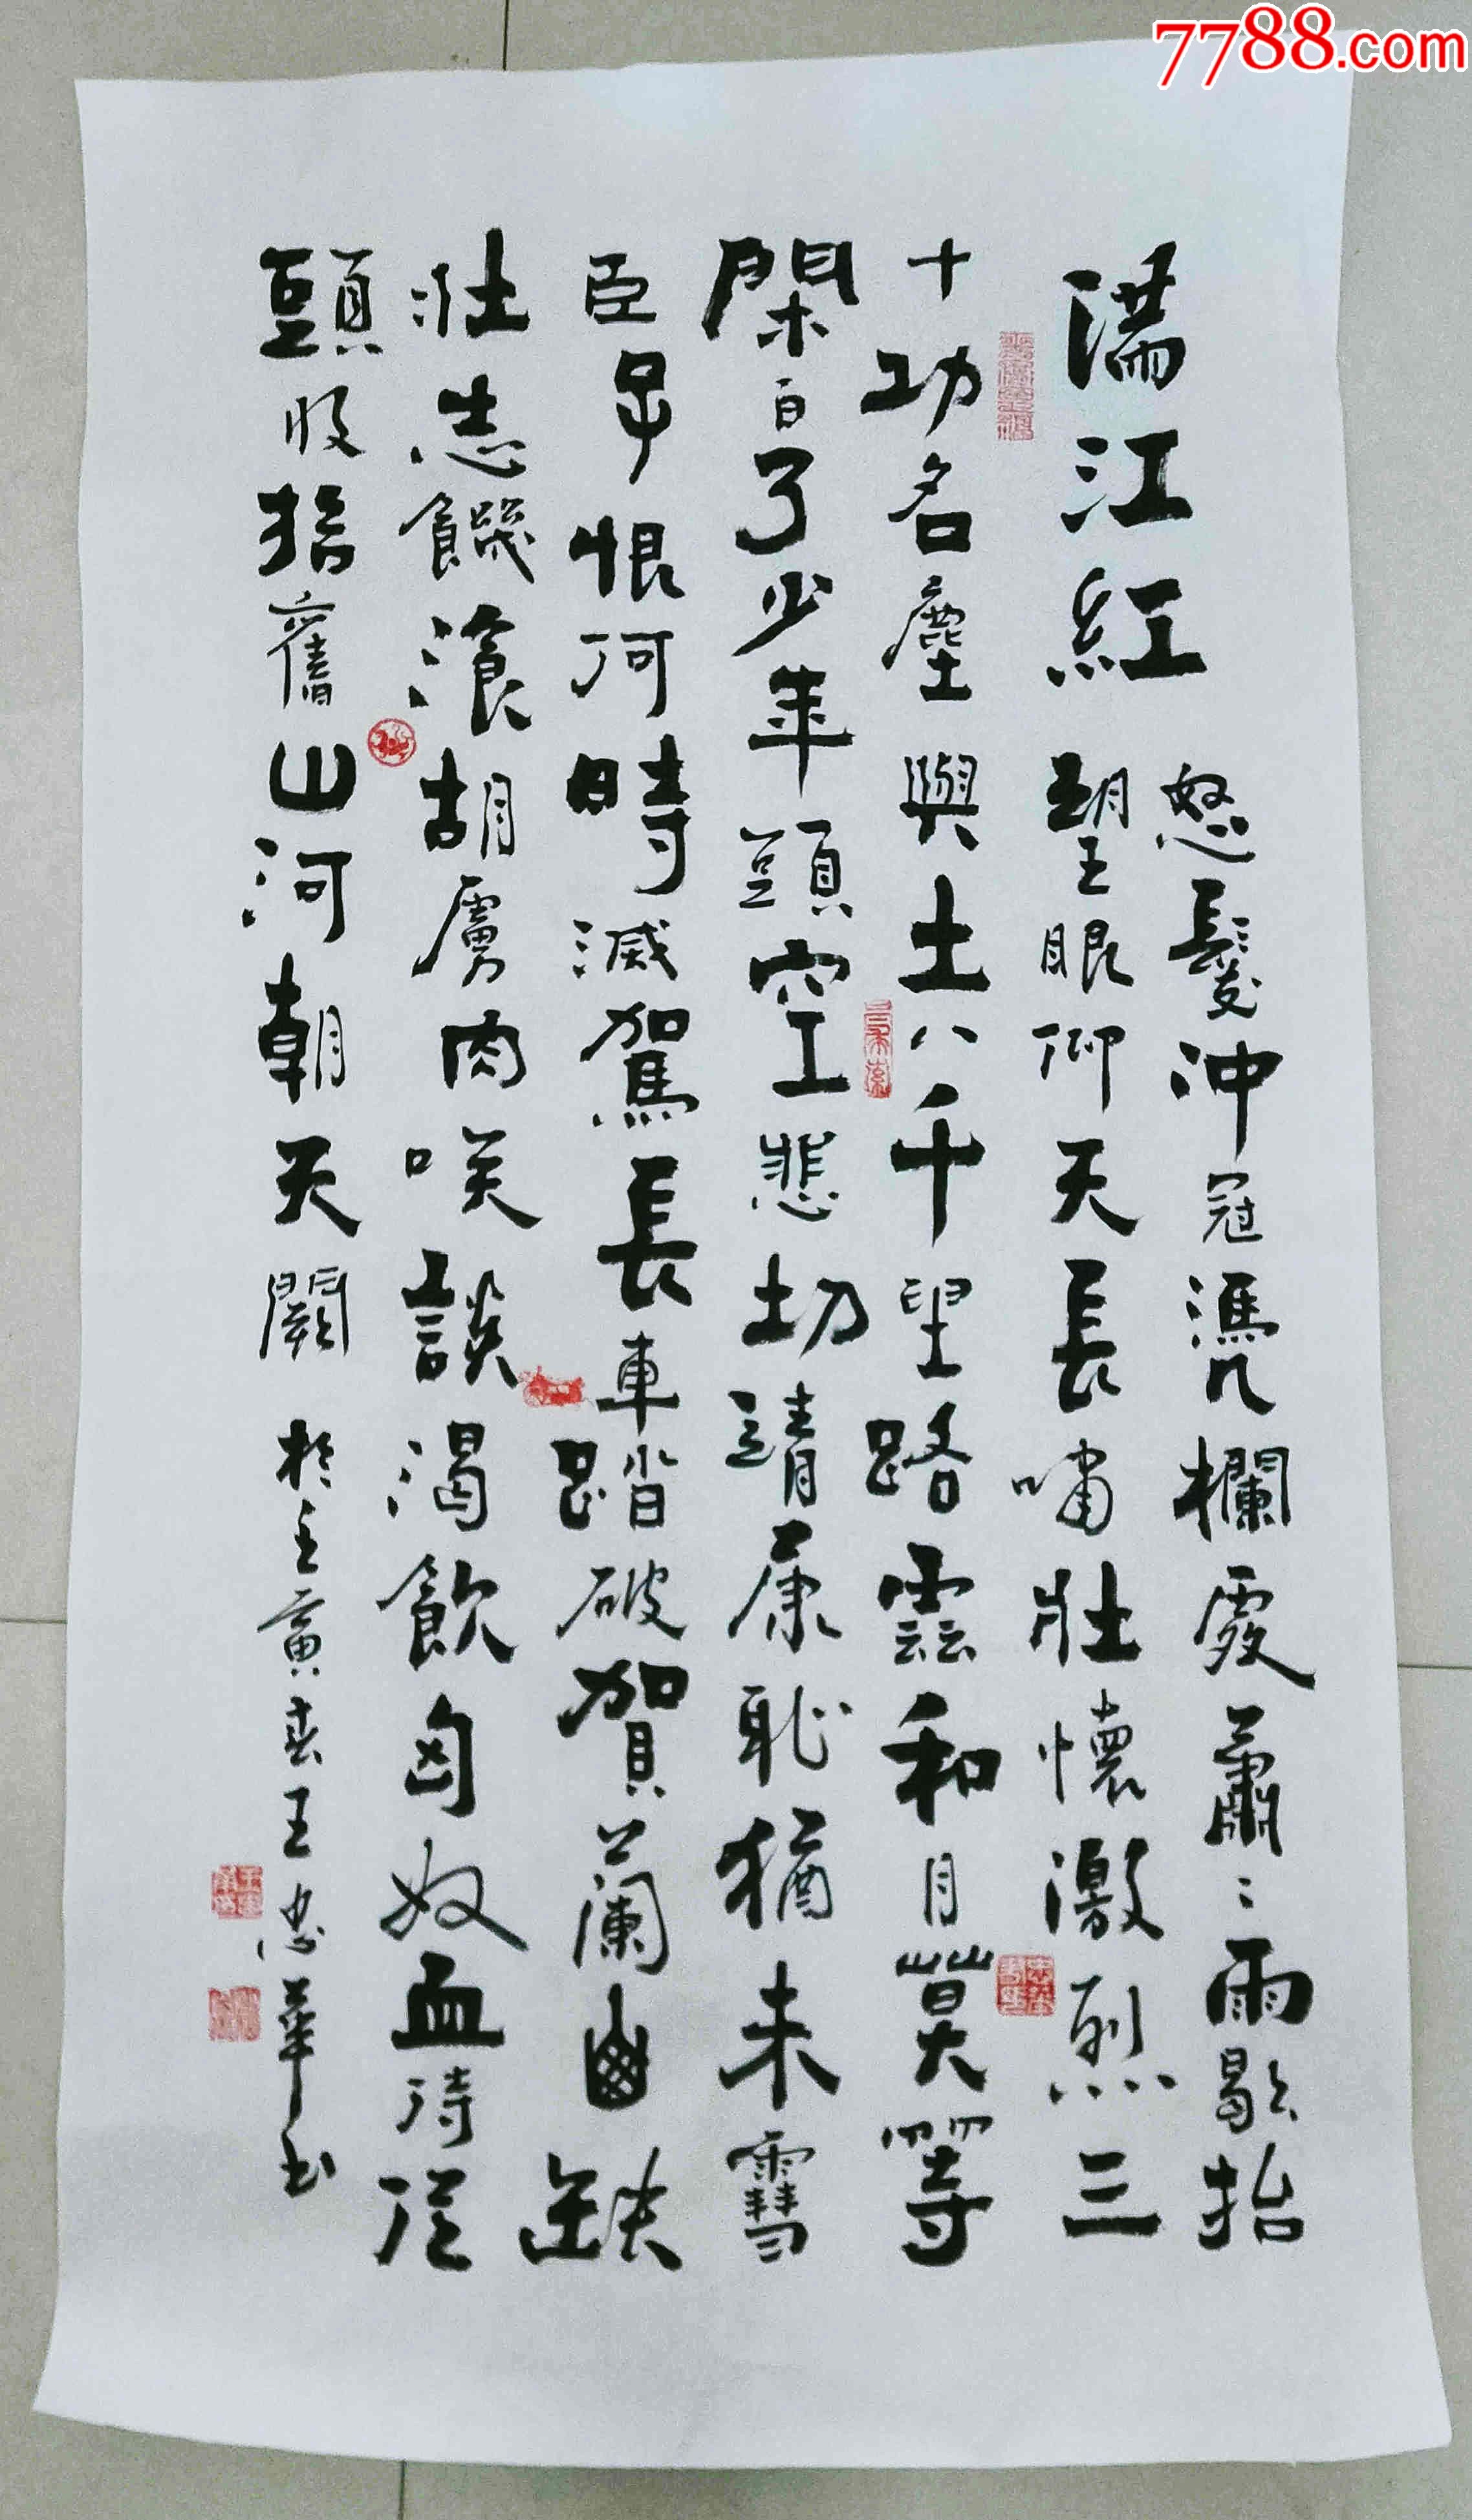 7788.com
滿江紅
怒髮冲冠憑欄處蕭〻雨歇抬
望眼仰天長嘯壯懷激烈三
十功名塵與土八千里路雲和月莫等
閑白了少年頭空悲切靖康恥猶未雪
臣子恨何時滅駕長車踏破賀蘭山缺
壯志饑湌胡虜肉咲談渴飲匈奴血待從
頭收拾舊山河朝天闕 於壬寅春王忠華书